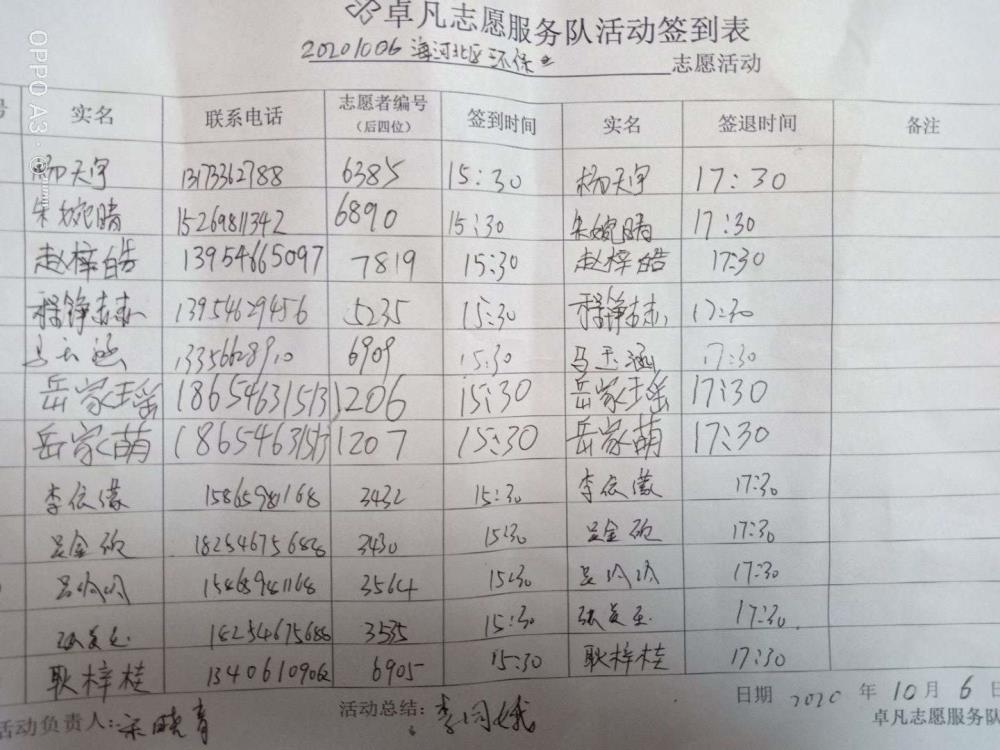 卓凡志愿服务队活动签到表
20201006 海河北区环保 志愿活动
号 实名 联系电话 志愿者编号（后四位） 签到时间 实名 签退时间 备注
杨天宇 13173362788 6385 15:30 杨天宇 17:30
朱婉晴 15269811342 6890 15:30 朱婉晴 17:30
赵梓皓 13954665097 7819 15:30 赵梓皓 17:30
程铮 13954629456 5235 15:30 程铮 17:30
马玉涵 13356628910 6909 15:30 马玉涵 17:30
岳家瑶 18654631513 1206 15:30 岳家瑶 17:30
岳家萌 18654631513 1207 15:30 岳家萌 17:30
李依潆 15865981168 3432 15:30 李依潆 17:30
吕金砚 18254675688 3430 15:30 吕金砚 17:30
吕 3564 15:30 吕 17:30
张 18254675688 3535 15:30 张 17:30
耿梓桂 13406109062 6905 15:30 耿梓桂 17:30
活动负责人：宋晓青 活动总结：李 日期 2020 年 10 月 6 日
卓凡志愿服务队
OPPO A3